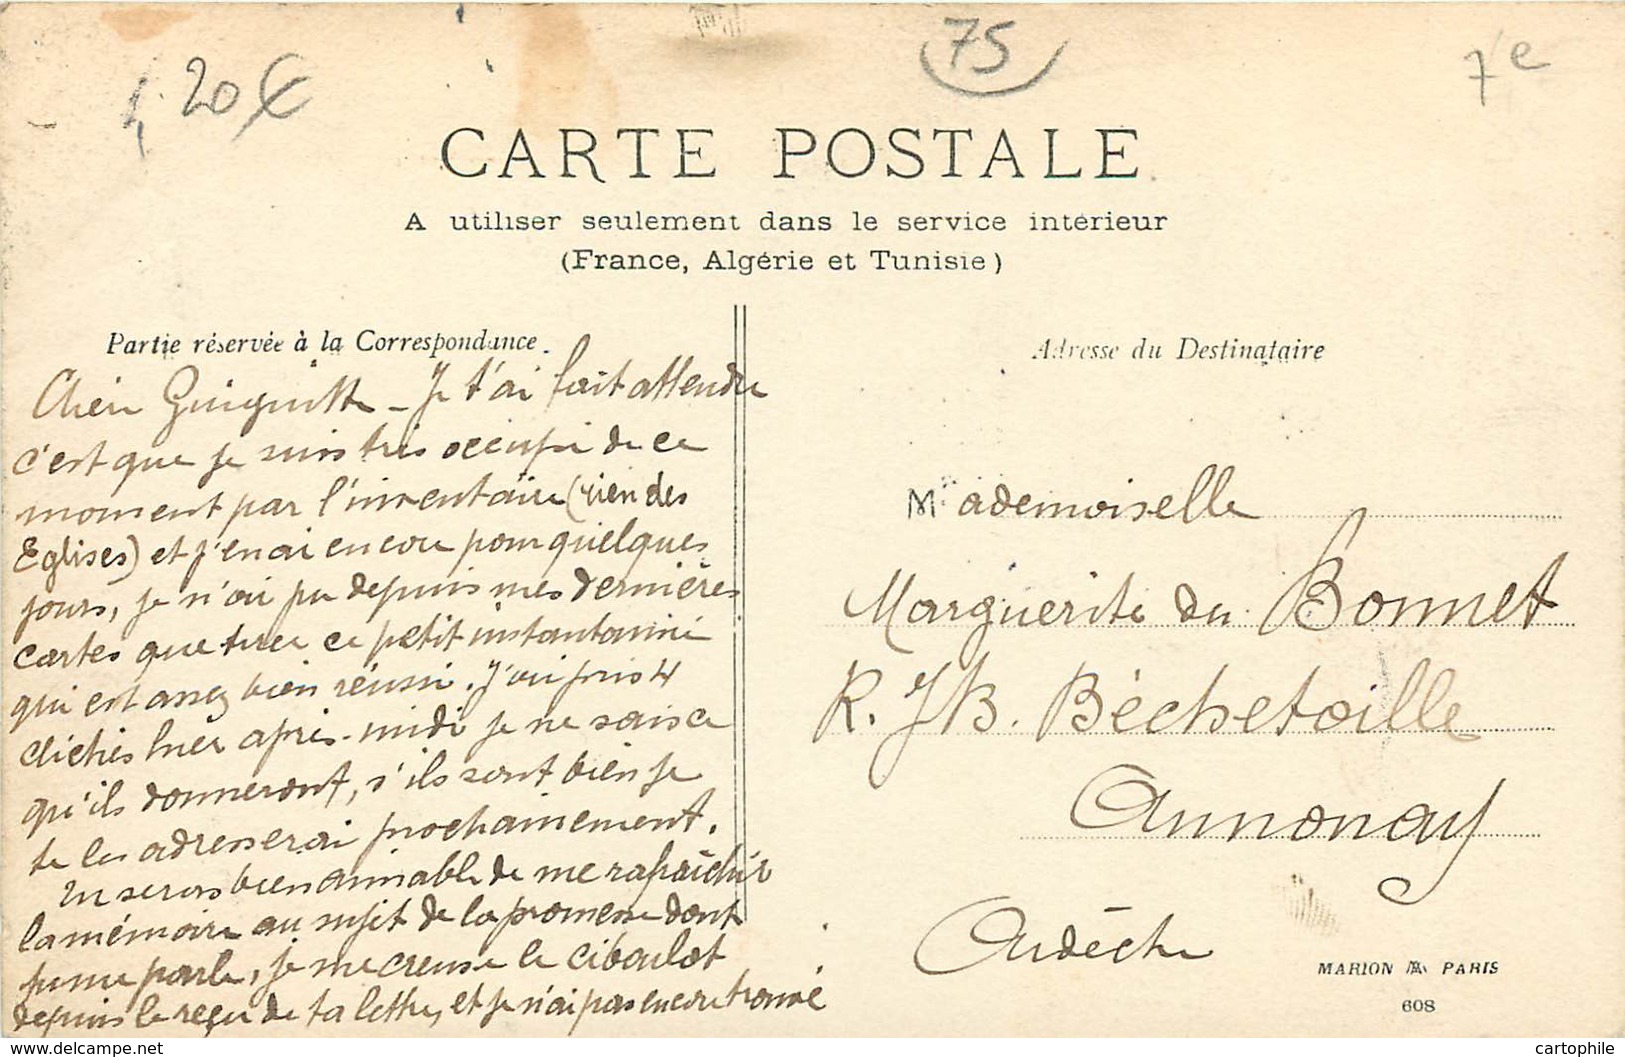 1,20€
75
7e
CARTE POSTALE
A utiliser seulement dans le service intérieur
(France, Algérie et Tunisie)
Partie réservée à la Correspondance.
Adresse du Destinataire
Chère Guiguitte - Je t'ai fait attendre
c'est que je suis très occupé de ce
moment par l'inventaire (rien des
Eglises) et j'en ai encore pour quelques
jours, je n'ai pu depuis mes dernières
cartes que tirer ce petit instantanné
qui est assez bien réussi. J'ai pris 4
clichés hier après-midi je ne sais ce
qu'ils donneront, s'ils sont bien je
te les adresserai prochainement.
Tu serais bien aimable de me rafraîchir
la mémoire au sujet de la promesse dont
tu me parle, je me creuse le ciboulot
depuis le reçu de ta lettre, et je n'ai pas encore trouvé
Mademoiselle
Marguerite du Bonnet
R. J B. Béchetoille
Annonay
Ardèche
MARION PARIS
608
https://www.delcampe.net
cartophile